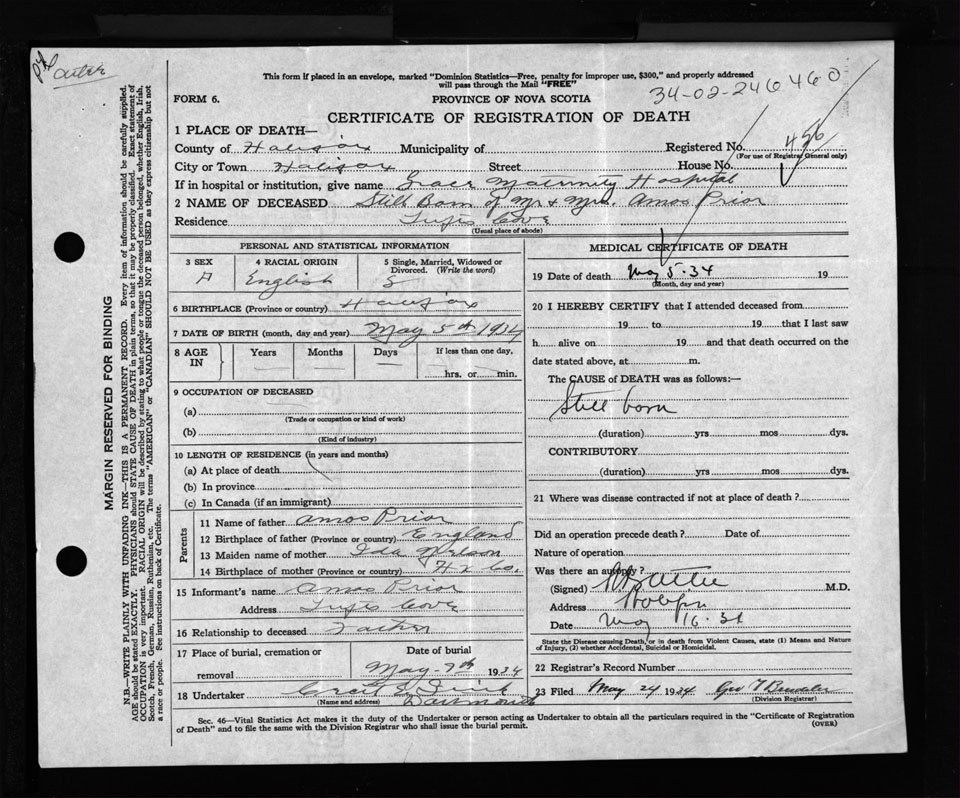 Carter
This form if placed in an envelope, marked "Dominion Statistics—Free, penalty for improper use, $300," and properly addressed
will pass through the Mail "FREE"
34-02-246460
FORM 6.
PROVINCE OF NOVA SCOTIA
CERTIFICATE OF REGISTRATION OF DEATH
1 PLACE OF DEATH—
County of Halifax Municipality of Registered No. 456
(For use of Registrar General only)
City or Town Halifax Street House No.
If in hospital or institution, give name Grace Maternity Hospital
2 NAME OF DECEASED Still Born of Mr & Mrs. Amos Prior
Residence Tufts Cove
(Usual place of abode)
PERSONAL AND STATISTICAL INFORMATION
3 SEX
4 RACIAL ORIGIN
English
5 Single, Married, Widowed or
Divorced. (Write the word)
S
6 BIRTHPLACE (Province or country) Halifax
7 DATE OF BIRTH (month, day and year) May 5th 1934
8 AGE IN
Years Months Days If less than one day,
hrs. or min.
9 OCCUPATION OF DECEASED
(a)
(Trade or occupation or kind of work)
(b)
(Kind of industry)
10 LENGTH OF RESIDENCE (in years and months)
(a) At place of death
(b) In province
(c) In Canada (if an immigrant)
Parents
11 Name of father Amos Prior
12 Birthplace of father (Province or country) England
13 Maiden name of mother Ida Nelson
14 Birthplace of mother (Province or country) Hx Co.
15 Informant's name Amos Prior
Address Tufts Cove
16 Relationship to deceased Father
17 Place of burial, cremation or
removal
Date of burial
May-7th 1934
18 Undertaker
(Name and address) Dartmouth
MEDICAL CERTIFICATE OF DEATH
19 Date of death May 5-34 19
(Month, day and year)
20 I HEREBY CERTIFY that I attended deceased from
19 to 19 that I last saw
h alive on 19 and that death occurred on the
date stated above, at m.
The CAUSE of DEATH was as follows:—
Still born
(duration) yrs mos dys.
CONTRIBUTORY
(duration) yrs mos dys.
21 Where was disease contracted if not at place of death?
Did an operation precede death? Date of
Nature of operation
Was there an autopsy?
(Signed) M.D.
Address Halifax
Date May 16-34
State the Disease causing Death, or in death from Violent Causes, state (1) Means and Nature
of Injury, (2) whether Accidental, Suicidal or Homicidal.
22 Registrar's Record Number
23 Filed May 24 1934
(Division Registrar)
Sec. 46—Vital Statistics Act makes it the duty of the Undertaker or person acting as Undertaker to obtain all the particulars required in the "Certificate of Registration
of Death" and to file the same with the Division Registrar who shall issue the burial permit.
(OVER)
MARGIN RESERVED FOR BINDING
N.B.—WRITE PLAINLY WITH UNFADING INK—THIS IS A PERMANENT RECORD. Every item of information should be carefully supplied.
AGE should be stated EXACTLY. PHYSICIANS should STATE CAUSE OF DEATH in plain terms, so that it may be properly classified. Exact statement of
OCCUPATION is very important. RACIAL ORIGIN will be described by stating to what people or tongue the deceased person belonged, whether English, Irish,
Scotch, French, German, Russian, Ruthenian, etc. The terms "AMERICAN" or "CANADIAN" SHOULD NOT BE USED as they express citizenship but not
a race or people. See instructions on back of Certificate.